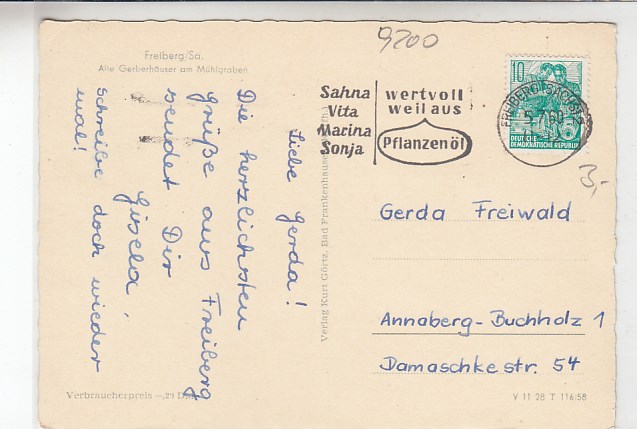 9200
Freiberg/Sa.
Alte Gerberhäuser am Mühlgraben
Sahna
Vita
Marina
Sonja
wertvoll
weil aus
Pflanzenöl
10
FREIBERG (SACHS)
DEUTSCHE
DEMOKRATISCHE REPUBLIK
3,-
Liebe Gerda!
Die herzlichsten
Grüße aus Freiberg
sendet Dir
Gisela,
schreibe doch wieder
mal!
Verlag Kurt Görtz, Bad Frankenhausen
Gerda Freiwald
Annaberg-Buchholz 1
Damaschkestr. 54
Verbraucherpreis -,23 DM
V 11 28 T 116/58